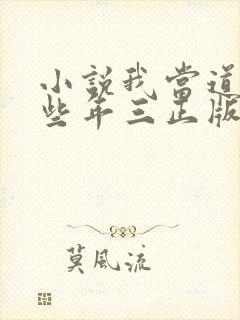 小說我當道
些年三正版
莫風流